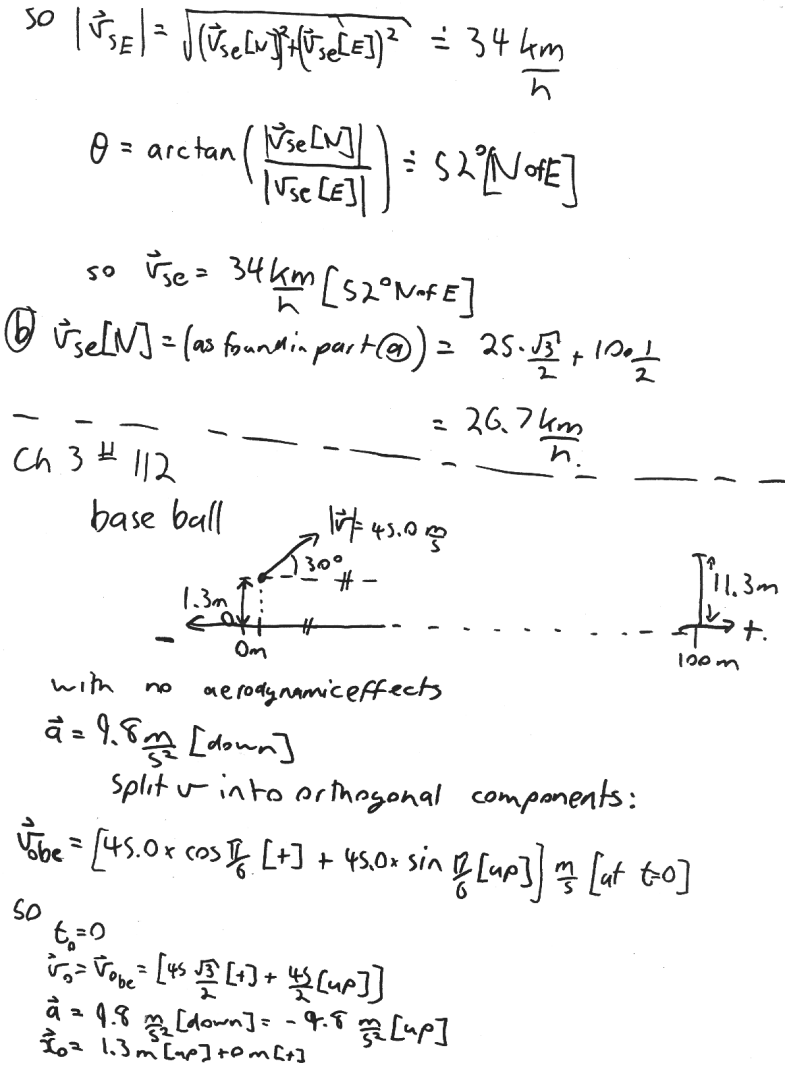 so |v⃗_SE| = √((v⃗_se[N])²+(v⃗_se[E])²) ≐ 34 km/h
θ = arctan(|v⃗_se[N]|/|v_se[E]|) ≐ 52°[N of E]
so v⃗_se = 34 km/h [52° N of E]
ⓑ v⃗_se[N] = (as found in part ⓐ) = 25·√3/2 + 10·1/2
= 26.7 km/h.
Ch 3 # 112
base ball
|v⃗| = 45.0 m/s
30°
1.3m
0
11.3m
- +.
0m
100m
with no aerodynamic effects
a⃗ = 9.8 m/s² [down]
split v into orthogonal components:
v⃗_obe = [45.0 x cos π/6 [+] + 45.0 x sin π/6 [up]] m/s [at t=0]
so
t₀=0
v⃗₀ = v⃗_obe = [45 √3/2 [+] + 45/2 [up]]
a⃗ = 9.8 m/s² [down] = -9.8 m/s² [up]
x⃗₀ = 1.3 m [up] + 0 m [+]